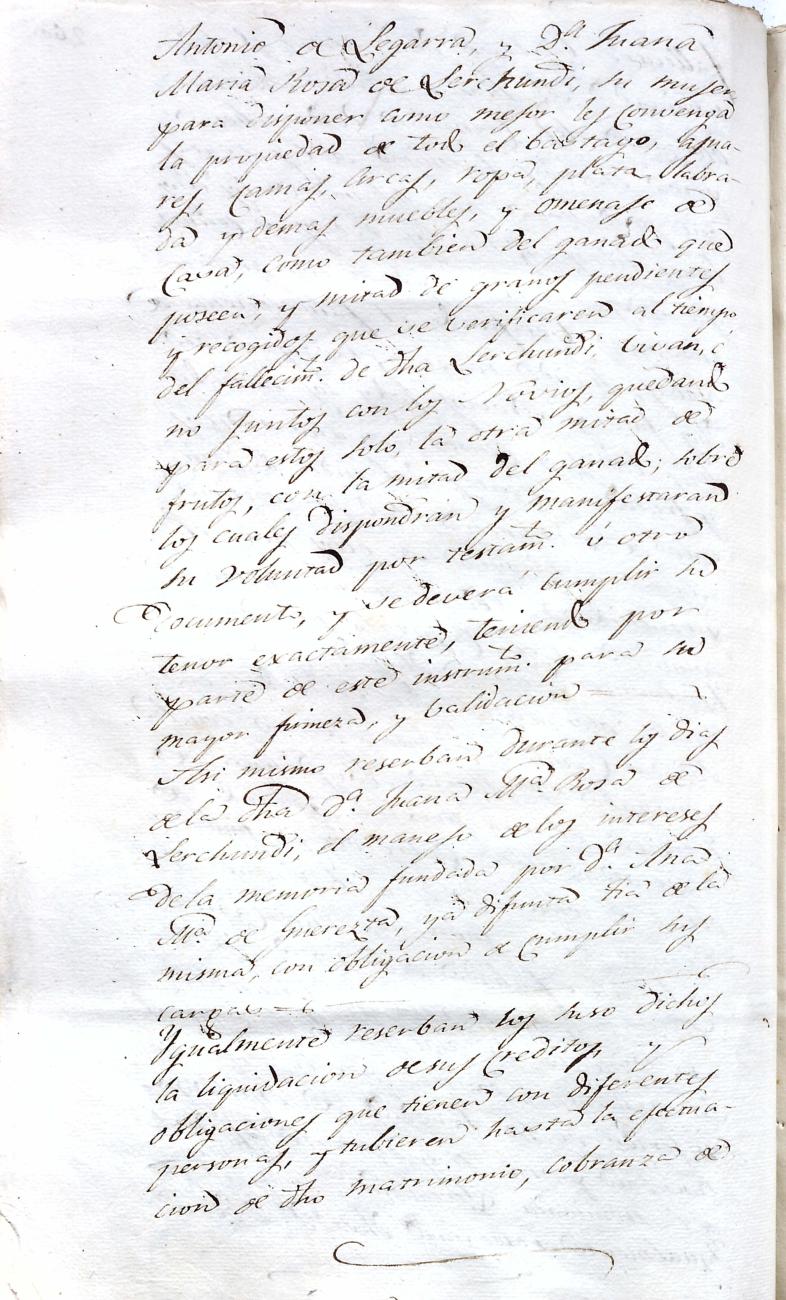 Antonio de Legarra, y D.ª Juana
Maria Rosa de Lerchundi, su muger
para disponer como mejor les convenga
la propiedad de todo el bastago, ajua-
res, Camas, Arcas, ropa, plata labra-
da y demas muebles, y omenase de
Casa, como tambien del ganado que
poseen, y mitad de granos pendientes
y recogidos que se verificaren al tiempo
del fallecim.to de dha Lerchundi, vivan, ó
no juntos con los Novios, quedando
para estos solo, la otra mitad de
frutos, con la mitad del ganado; sobre
los cuales dispondrán y manifestaran
su voluntad por testam.to ú otro
Documento, y se deverá cumplir su
tenor exactamente, teniendo por
parte de este instrum.to para su
mayor firmeza, y validacion
Asi mismo reserban durante los dias
de la dha D.ª Juana M.ª Rosa de
Lerchundi, el manejo de los intereses
de la memoria fundada por D.ª Ana
M.ª de , ya difunta tia de la
misma, con obligacion de cumplir sus
cargas
Ygualmente reserban los suso dichos
la liquidacion de sus Creditos, y
obligaciones que tienen con diferentes
personas, y tubieren hasta la efectua-
cion de dho matrimonio, cobranza de